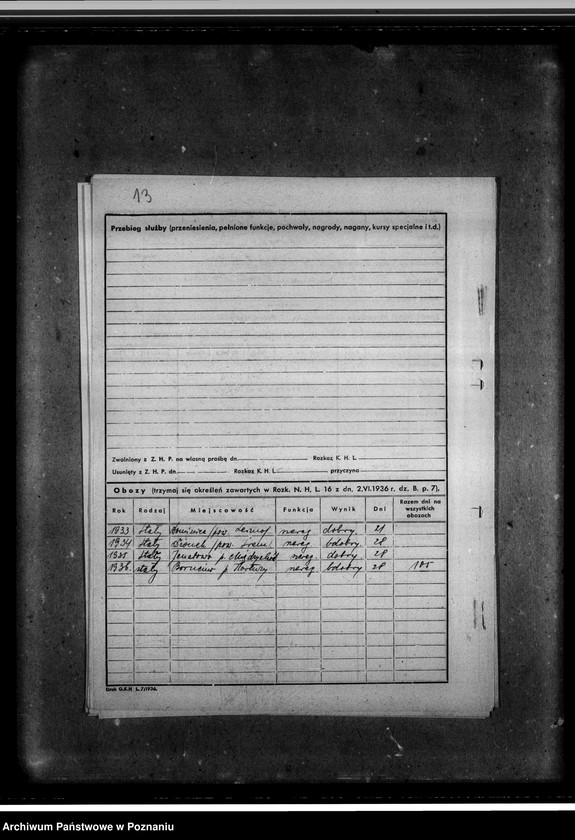 13
Przebieg służby (przeniesienia, pełnione funkcje, pochwały, nagrody, nagany, kursy specjalne i t.d.)
Zwolniony z Z. H. P. na własną prośbę dn. Rozkaz K. H. L.
Usunięty z Z. H. P. dn. Rozkaz K. H. L. przyczyna
Obozy (trzymaj się określeń zawartych w Rozk. N. H. L. 16 z dn. 2.VI.1936 r. dz. B. p. 7).
Rok Rodzaj Miejscowość Funkcja Wynik Dni Razem dni na wszystkich obozach
1933 stały /pow. dobry 21
1934 stały /pow. bdobry 28
1935 stały p. dobry 28
1936 stały p. Kartuzy bdobry 28 105
Druk G.K.H L.7/1936.
Archiwum Państwowe w Poznaniu